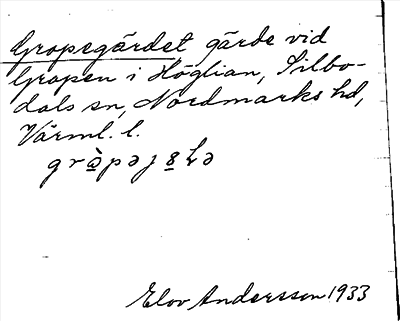 Gropegärdet gärde vid
Gropen i Höglian, Silbo-
dals sn, Nordmarks hd,
Värml. l.
Elov Andersson 1933